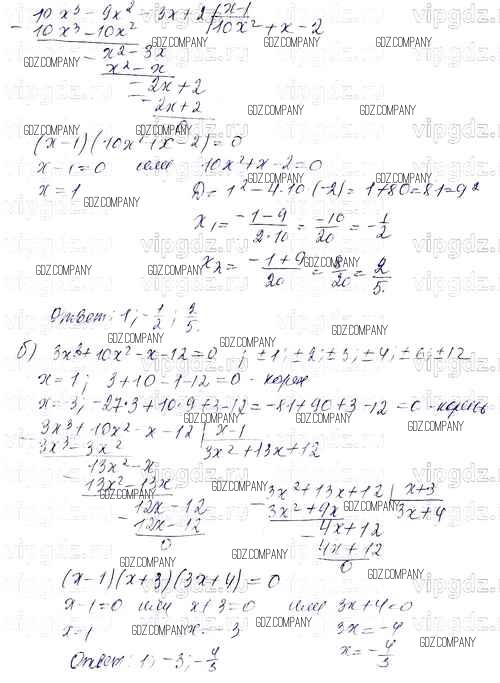 10x³ - 9x² - 3x + 2 | x-1
10x³ - 10x² | 10x² + x - 2
x² - 3x
x² - x
- 2x + 2
- 2x + 2
0
(x-1)(10x² + x - 2) = 0
x - 1 = 0 или 10x² + x - 2 = 0
x = 1 D = 1² - 4·10·(-2) = 1 + 80 = 81 = 9²
x₁ = (-1-9)/(2·10) = -10/20 = -1/2
x₂ = (-1+9)/20 = 8/20 = 2/5.
Ответ: 1; -1/2; 2/5.
б) 3x³ + 10x² - x - 12 = 0 ; ±1; ±2; ±3; ±4; ±6; ±12
x = 1; 3 + 10 - 1 - 12 = 0 - корень
x = -3; -27·3 + 10·9 + 3 - 12 = -81 + 90 + 3 - 12 = 0 - корень
3x³ + 10x² - x - 12 | x-1
3x³ - 3x² | 3x² + 13x + 12
13x² - x
13x² - 13x
12x - 12
12x - 12
0
3x² + 13x + 12 | x+3
3x² + 9x | 3x + 4
4x + 12
4x + 12
0
(x-1)(x+3)(3x+4) = 0
x - 1 = 0 или x + 3 = 0 или 3x + 4 = 0
x = 1 x = -3 3x = -4
x = -4/3
Ответ: 1; -3; -4/3
vipgdz.ru
GDZ.COMPANY